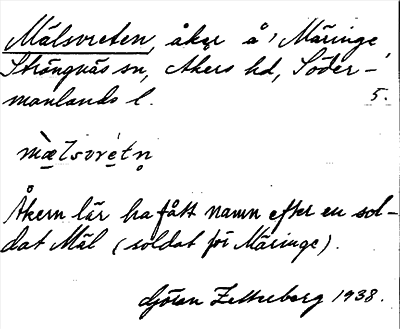 Mälsvreten, åker å, Märinge
Strängnäs sn, Åkers hd, Söder-
manlands l. 5.
mæ̀lsvrétn̥
Åkern lär ha fått namn efter en sol-
dat Mäl (soldat för Märinge).
Göran Zetterberg 1938.